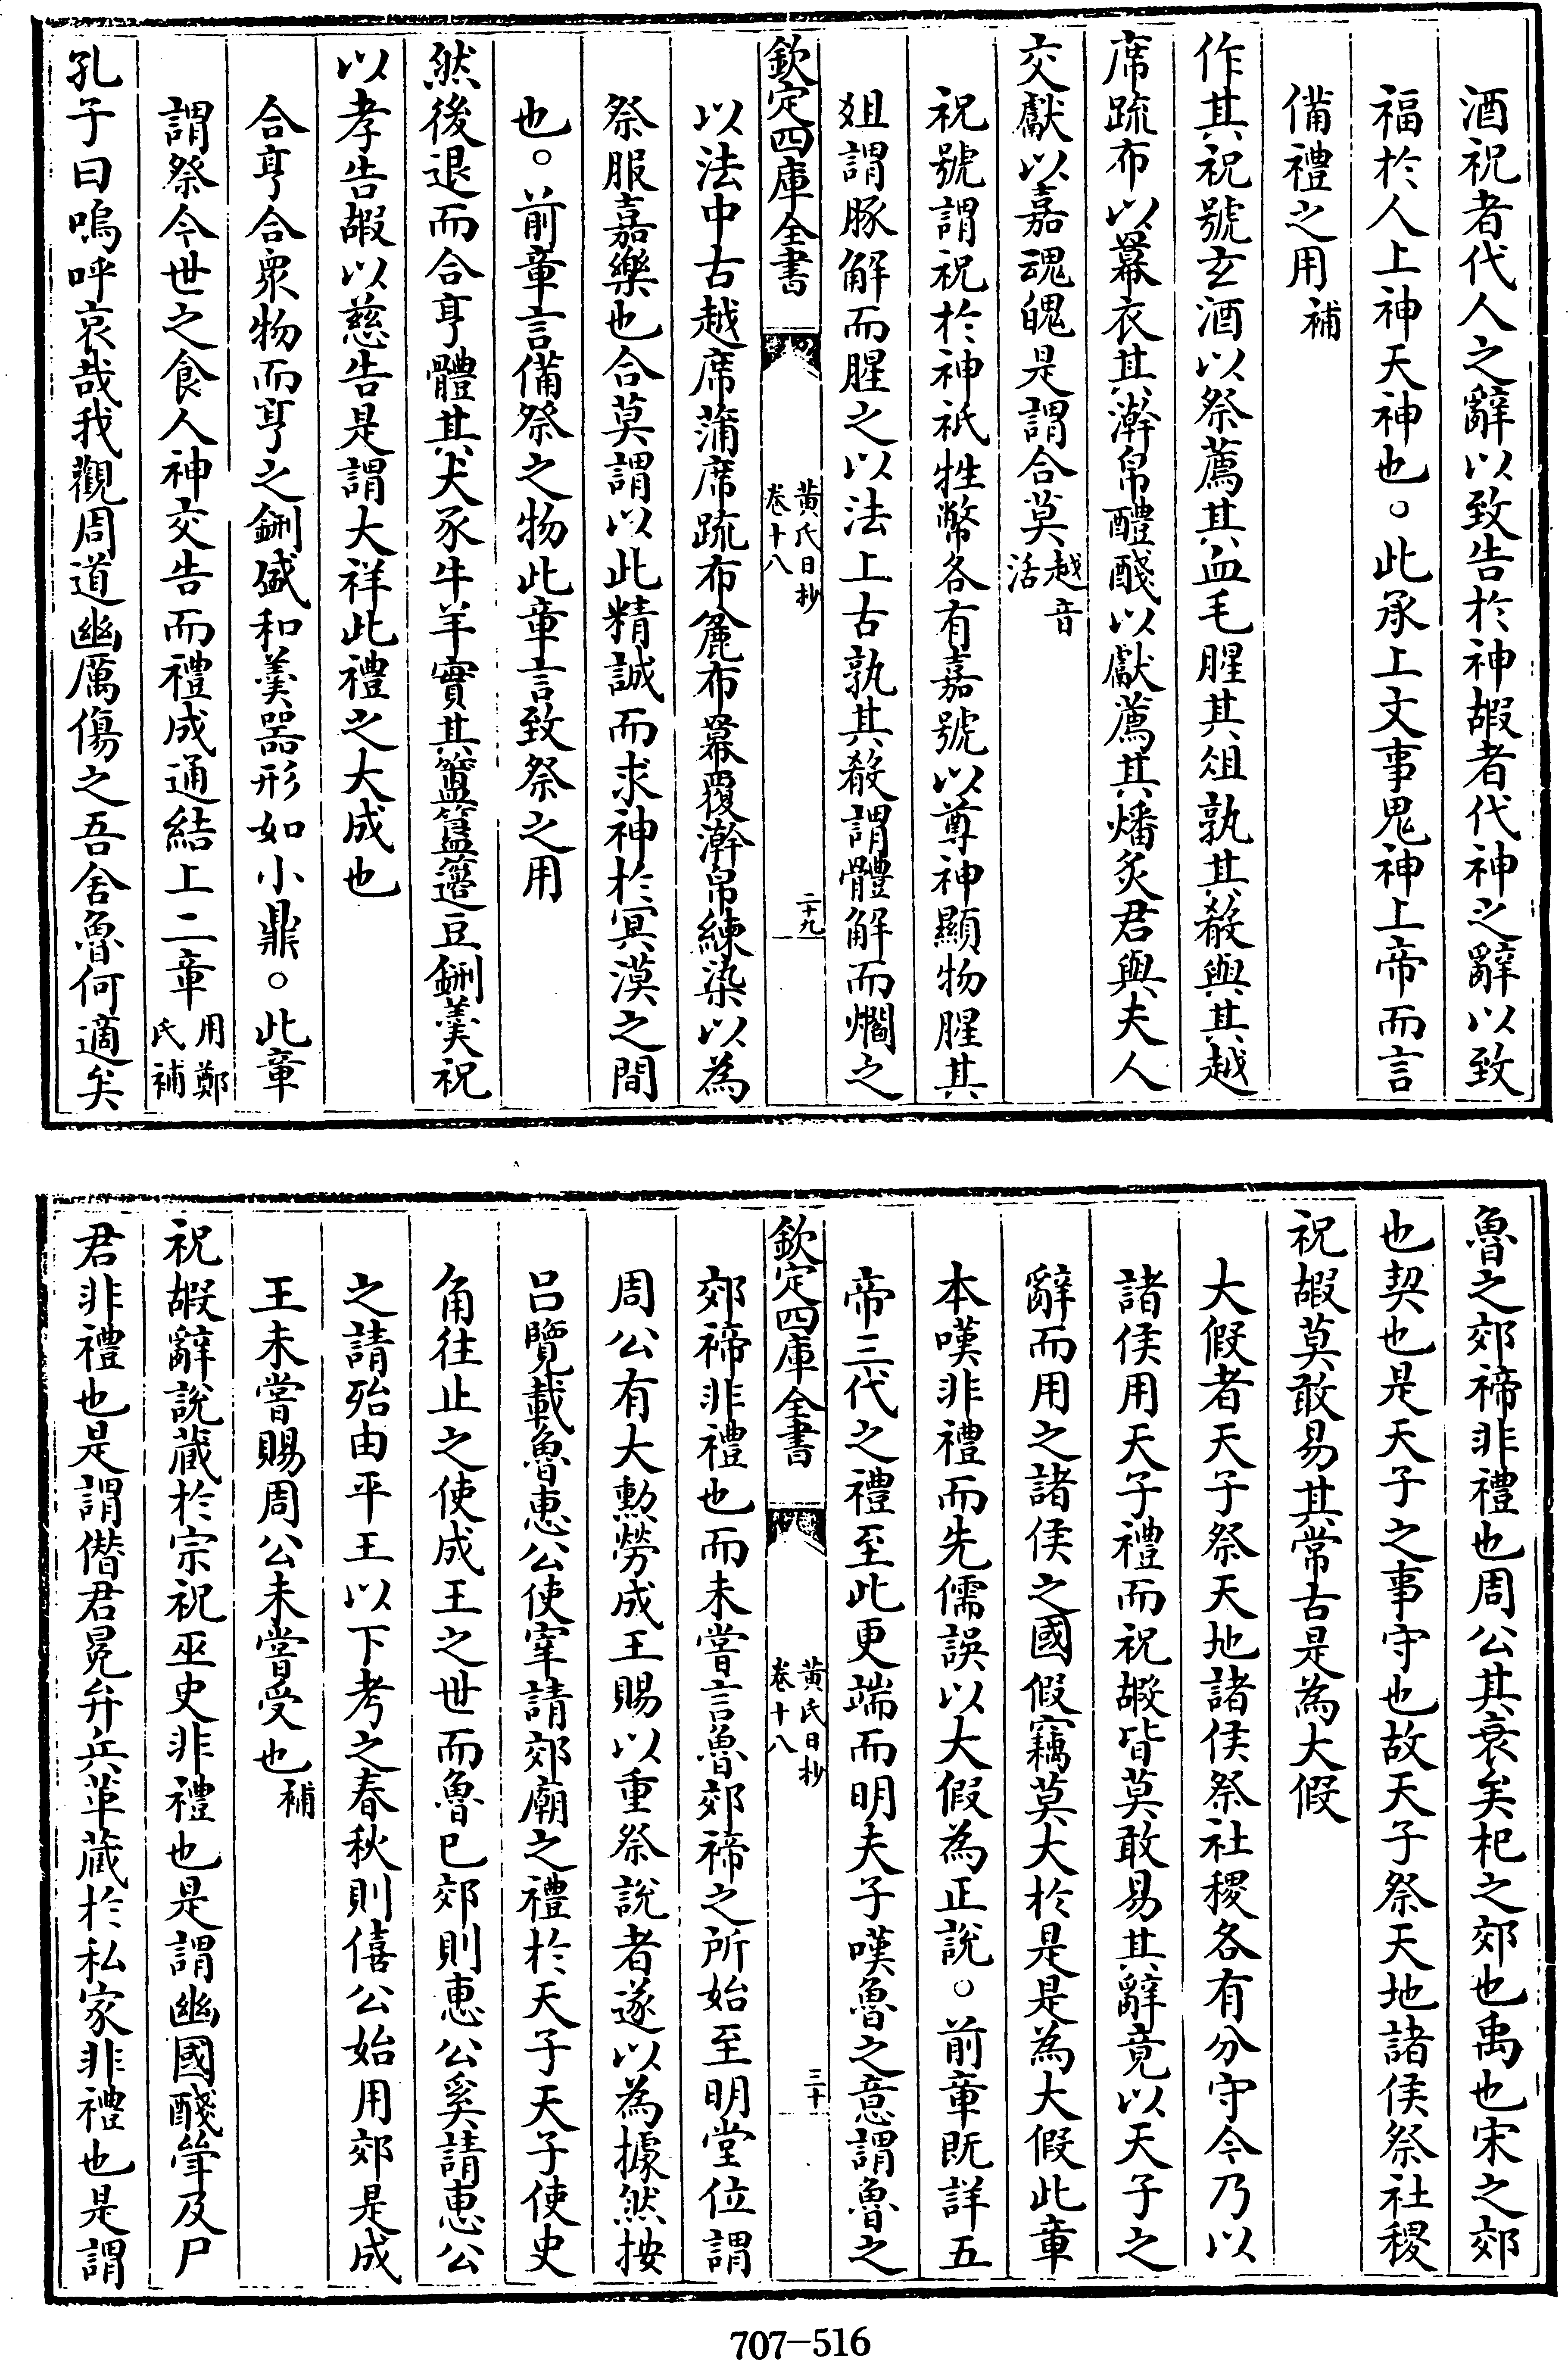 酒祝者代人之辭以致告於神嘏者代神之辭以致
福於人上神天神也○此承上文事鬼神上帝而言
備禮之用補
作其祝號玄酒以祭薦其血毛腥其俎孰其殽與其越
席疏布以冪衣其澣帛醴醆以獻薦其燔炙君與夫人
交獻以嘉魂魄是謂合莫越音活
祝號謂祝於神祇牲幣各有嘉號以尊神顯物腥其
俎謂豚解而腥之以法上古孰其殽謂體解而爓之
欽定四庫全書 黄氏日抄 卷十八 二十九
以法中古越席蒲席疏布麄布冪覆澣帛練染以為
祭服嘉樂也合莫謂以此精誠而求神於冥漠之間
也○前章言備祭之物此章言致祭之用
然後退而合亨體其犬豕牛羊實其簠簋籩豆鉶羹祝
以孝告嘏以慈告是謂大祥此禮之大成也
合亨合衆物而亨之鉶盛和羹器形如小鼎○此章
謂祭今世之食人神交告而禮成通結上二章用鄭氏補
孔子曰嗚呼哀哉我觀周道幽厲傷之吾舍魯何適矣
魯之郊禘非禮也周公其衰矣杞之郊也禹也宋之郊
也契也是天子之事守也故天子祭天地諸侯祭社稷
祝嘏莫敢易其常古是為大假
大假者天子祭天地諸侯祭社稷各有分守今乃以
諸侯用天子禮而祝嘏皆莫敢易其辭竟以天子之
辭而用之諸侯之國假竊莫大於是是為大假此章
本嘆非禮而先儒誤以大假為正說○前章既詳五
帝三代之禮至此更端而明夫子嘆魯之意謂魯之
欽定四庫全書 黄氏日抄 卷十八 三十
郊禘非禮也而未嘗言魯郊禘之所始至明堂位謂
周公有大勲勞成王賜以重祭說者遂以為據然按
吕覽載魯惠公使宰請郊廟之禮於天子天子使史
角往止之使成王之世而魯已郊則惠公奚請惠公
之請殆由平王以下考之春秋則僖公始用郊是成
王未嘗賜周公未嘗受也補
祝嘏辭說藏於宗祝巫史非禮也是謂幽國醆斝及尸
君非禮也是謂僭君冕弁兵革藏於私家非禮也是謂
707-516